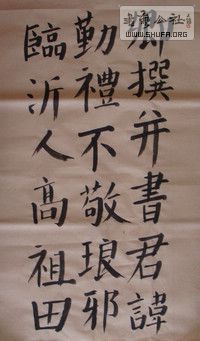 卿撰并書君諱
勤禮不敬琅邪
臨沂人高祖田
書法公社
WWW.SHUFA.ORG